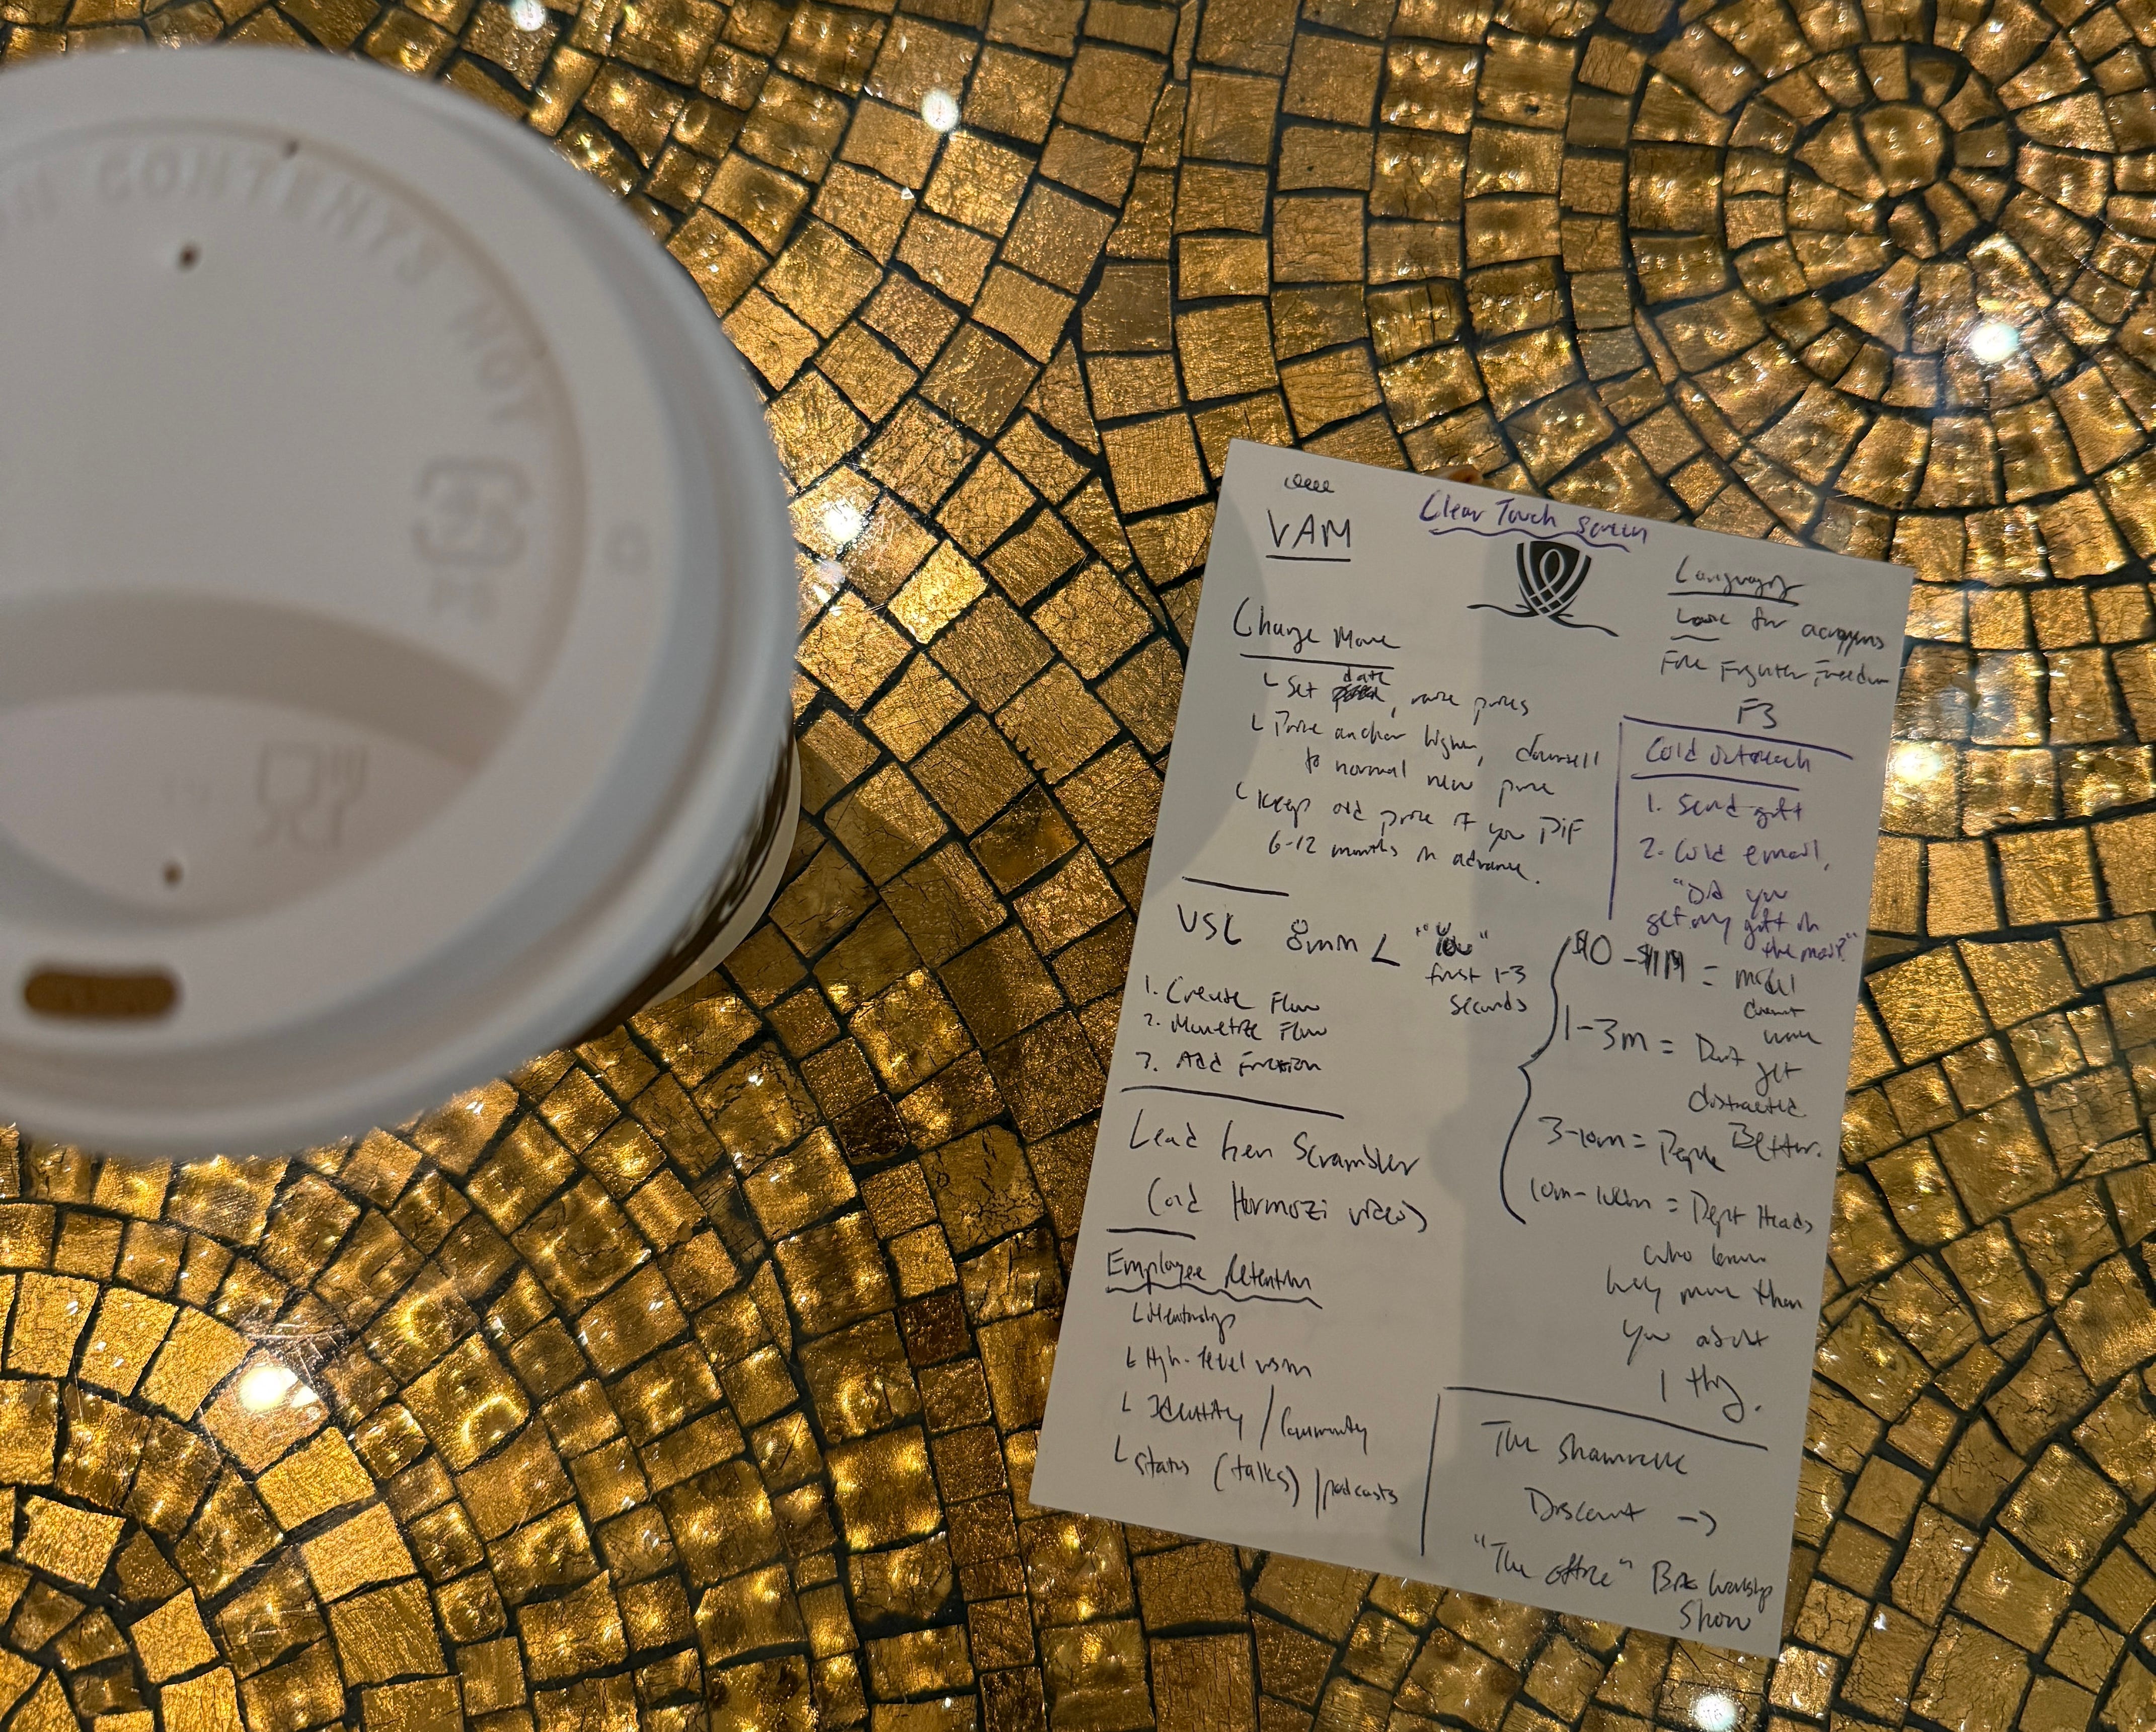 CONTENTS HOT
VAM
Clear Touch Screen
Charge More
└ Set date, raise prices
└ Price anchor higher, downsell
to normal new price
└ Keep old price if you PIF
6-12 months in advance.
VSL 8mm L "You"
first 1-3
seconds
1. Create Flow
2. Monetize Flow
3. Add Friction
Lead Gen Scrambler
(old Hormozi video)
Employee Retention
└ Mentorship
└ High-level vision
└ Identity / Community
└ Status (talks) / podcasts
Language
Look for acronyms
Fire Fighter Freedom
F3
Cold outreach
1. Send gift
2. Cold email,
"Did you
get my gift in
the mail?"
$0 - $1M = model
doesn't
work
1-3m = Don't
get
distracted
3-10m = People Better.
10m-100m = Dept Heads
who know
way more than
you about
1 thg.
The
Discount →
"The office" Workshop
Show